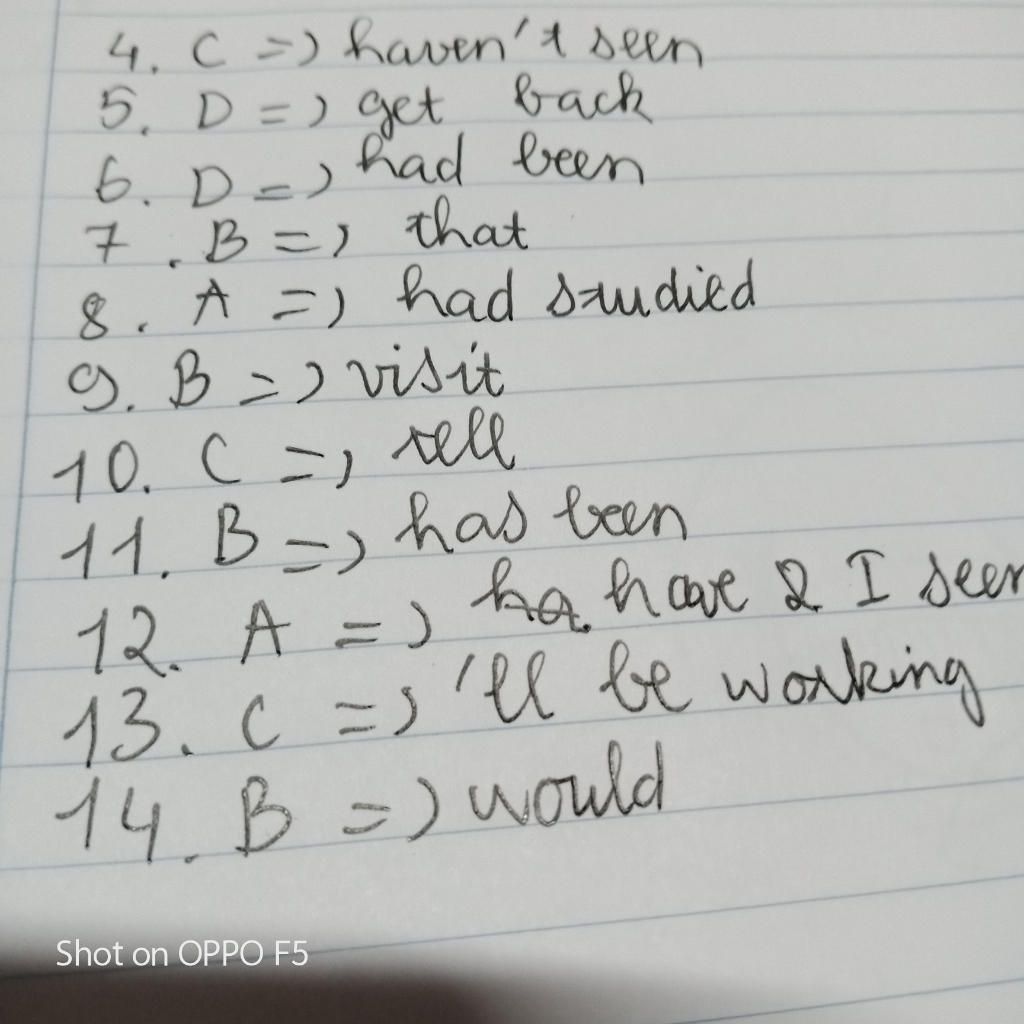 4. C => haven't seen
5. D => get back
6. D => had been
7. B => that
8. A => had studied
9. B => visit
10. C => tell
11. B => has been
12. A => have I seen
13. C => 'll be working
14. B => would
Shot on OPPO F5